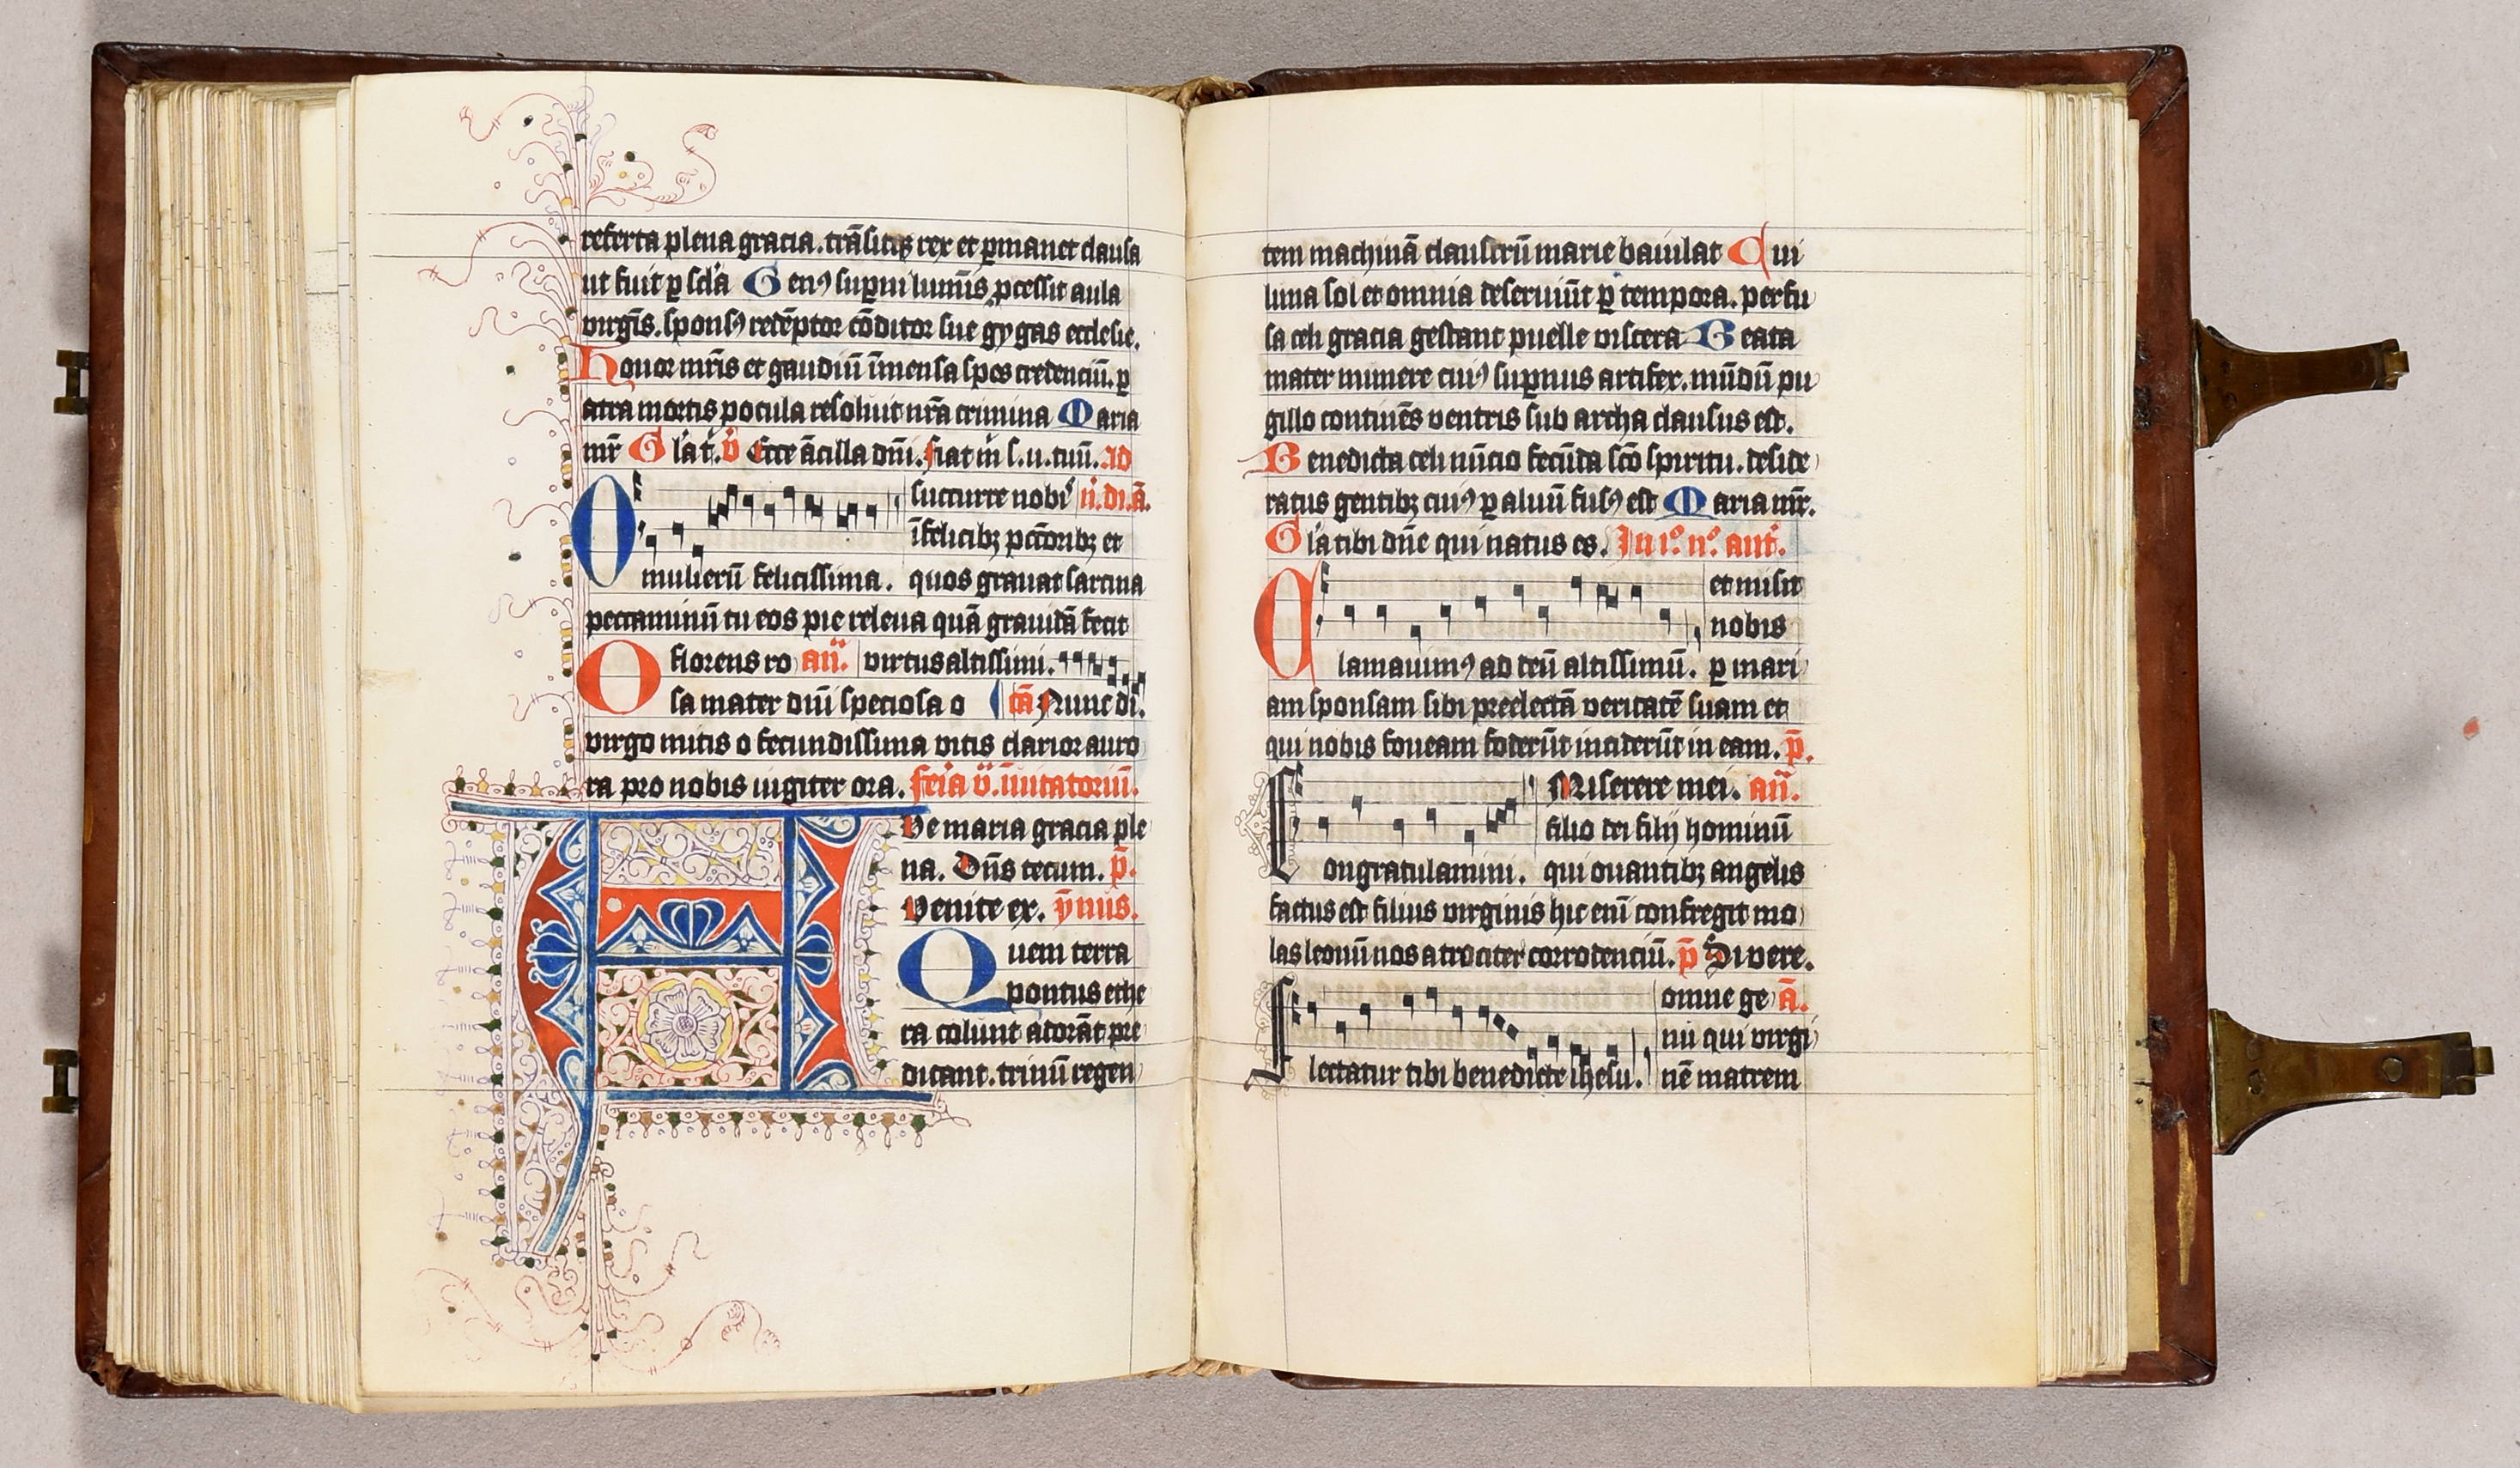 referta plena gracia. trãsitq; rex et ꝑmanet clausa
ut fuit ꝑ scl̃a Genꝰ suꝑni lumĩs ꝓcessit aula
virgĩs. sponsꝰ redẽptor cõditor sue gygas ecclesie.
Honor mr̃is et gaudiũ ĩmensa spes credenciũ. ꝑ
atra mortis pocula resoluit nr̃a crimina Maria
mr̃ Gl̃a t̃. v̊ Ecce ãcilla dñi. fiat m̃ s. u. tuũ. Ad
succurre nobiꝰ ñ. di. ã.
O ĩfelicibꝫ pctõribꝫ et
mulierũ felicissima. quos grauat sarcina
peccaminũ tu eos pie releua quã grauidã fecit
O florens ro añ. virtus altissimi.
sa mater dñi speciosa o cã Nunc di.
virgo mitis o fecundissima vitis clarior auro
ra pro nobis iugiter ora. feĩa v̊. ĩuitatoriũ.
Ave maria gracia ple
na. Dñs tecum. p̃.
Venite ex. ỹmis.
Quem terra
pontus ethe
ra colunt adorãt pre
dicant. trinũ regen
tem machinã claustrũ marie baiulat Cui
luna sol et omnia deseruiũt ꝑ tempora. perfu
sa celi gracia gestant puelle viscera Beata
mater munere cuiꝰ suꝑnus artifex. mũdũ pu
gillo continẽs ventris sub archa clausus est.
Benedicta celi nũcio fecũda sc̃o spiritu. deside
ratus gentibꝫ cuiꝰ ꝑ aluũ fusꝰ est Maria mr̃.
Gl̃a tibi dñe qui natus es. In i.º n.º ant̃.
et misit
nobis
Clamauimꝰ ad deũ altissimũ. ꝑ mari
am sponsam sibi preelectã veritatẽ suam et
qui nobis foueam foderũt inciderũt in eam. p̃.
Miserere mei. añ.
filio dei filij hominũ
Congratulamini. qui ouantibꝫ angelis
factus est filius virginis hic eni᷉ confregit mo
las leonũ nos atrociter corrodenciũ. p̃ Si vere.
omne ge ã.
nu qui virgi
Flectatur tibi benedicte ihesu. nẽ matrem